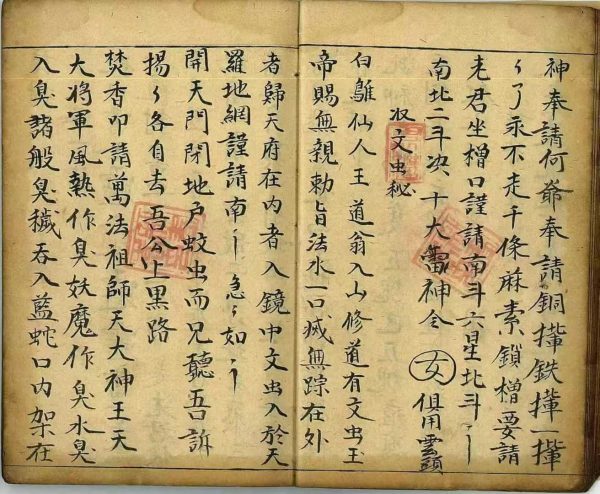 神奉請何爺奉請銅攆鉄攆一攆
〻了永不走千條蔴索鎖橧要請
老君坐橧口謹請南斗六星北斗〻
南北二斗决十大雷神令 女 俱用雲頭
收文虫秘
白鶴仙人王道翁入山修道有文虫玉
帝賜無親勅旨法水一口滅無踪在外
者歸天府在内者入鏡中文虫入於天
羅地網謹請南〻急〻如〻
開天門閉地户蚊虫而兄聽吾訴
揚〻各自去吾公上黑路
焚香叩請萬法祖師天大神王天
大将軍風熱作臭妖魔作臭水臭
入臭諸般臭穢吞入藍蛇口内架在